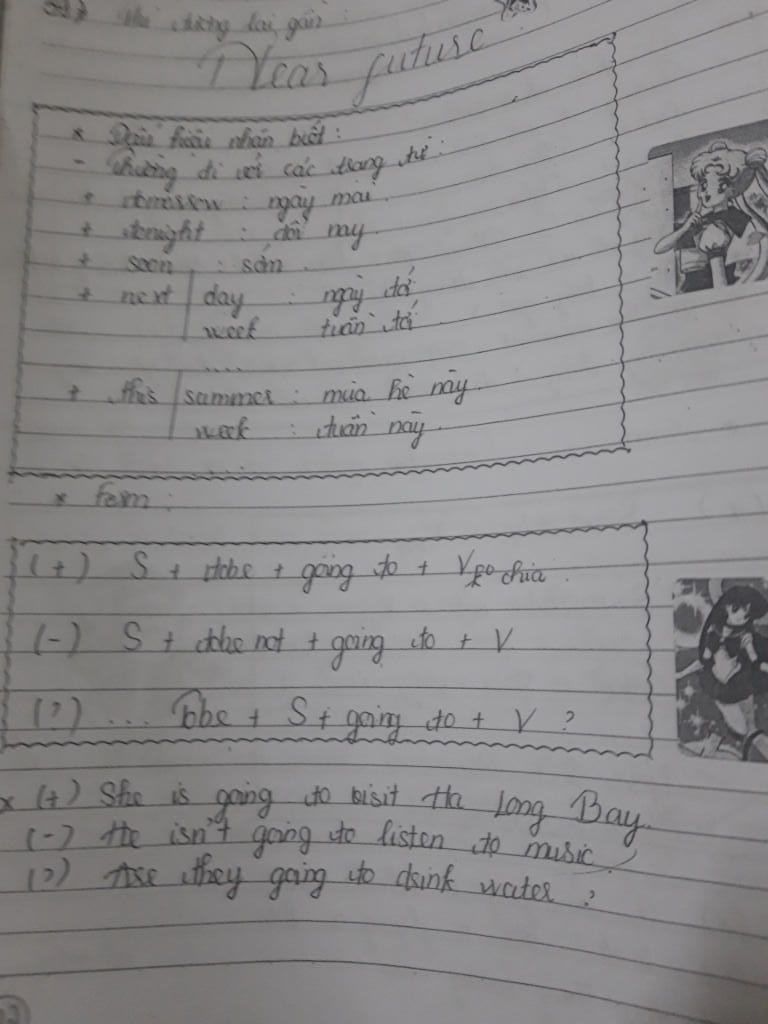 Thì tương lai gần :
Near future
* Dấu hiệu nhận biết :
- Thường đi với các trạng từ :
+ tomorrow : ngày mai
+ tonight : tối nay
+ soon : sớm
+ next | day : ngày tới
week tuần tới
....
+ this | summer : mùa hè này
week : tuần này
...
* Form :
(+) S + tobe + going to + V ko chia
(-) S + tobe not + going to + V
(?) ... Tobe + S + going to + V ?
x (+) She is going to visit Ha Long Bay.
(-) He isn't going to listen to music
(?) Are they going to drink water ?